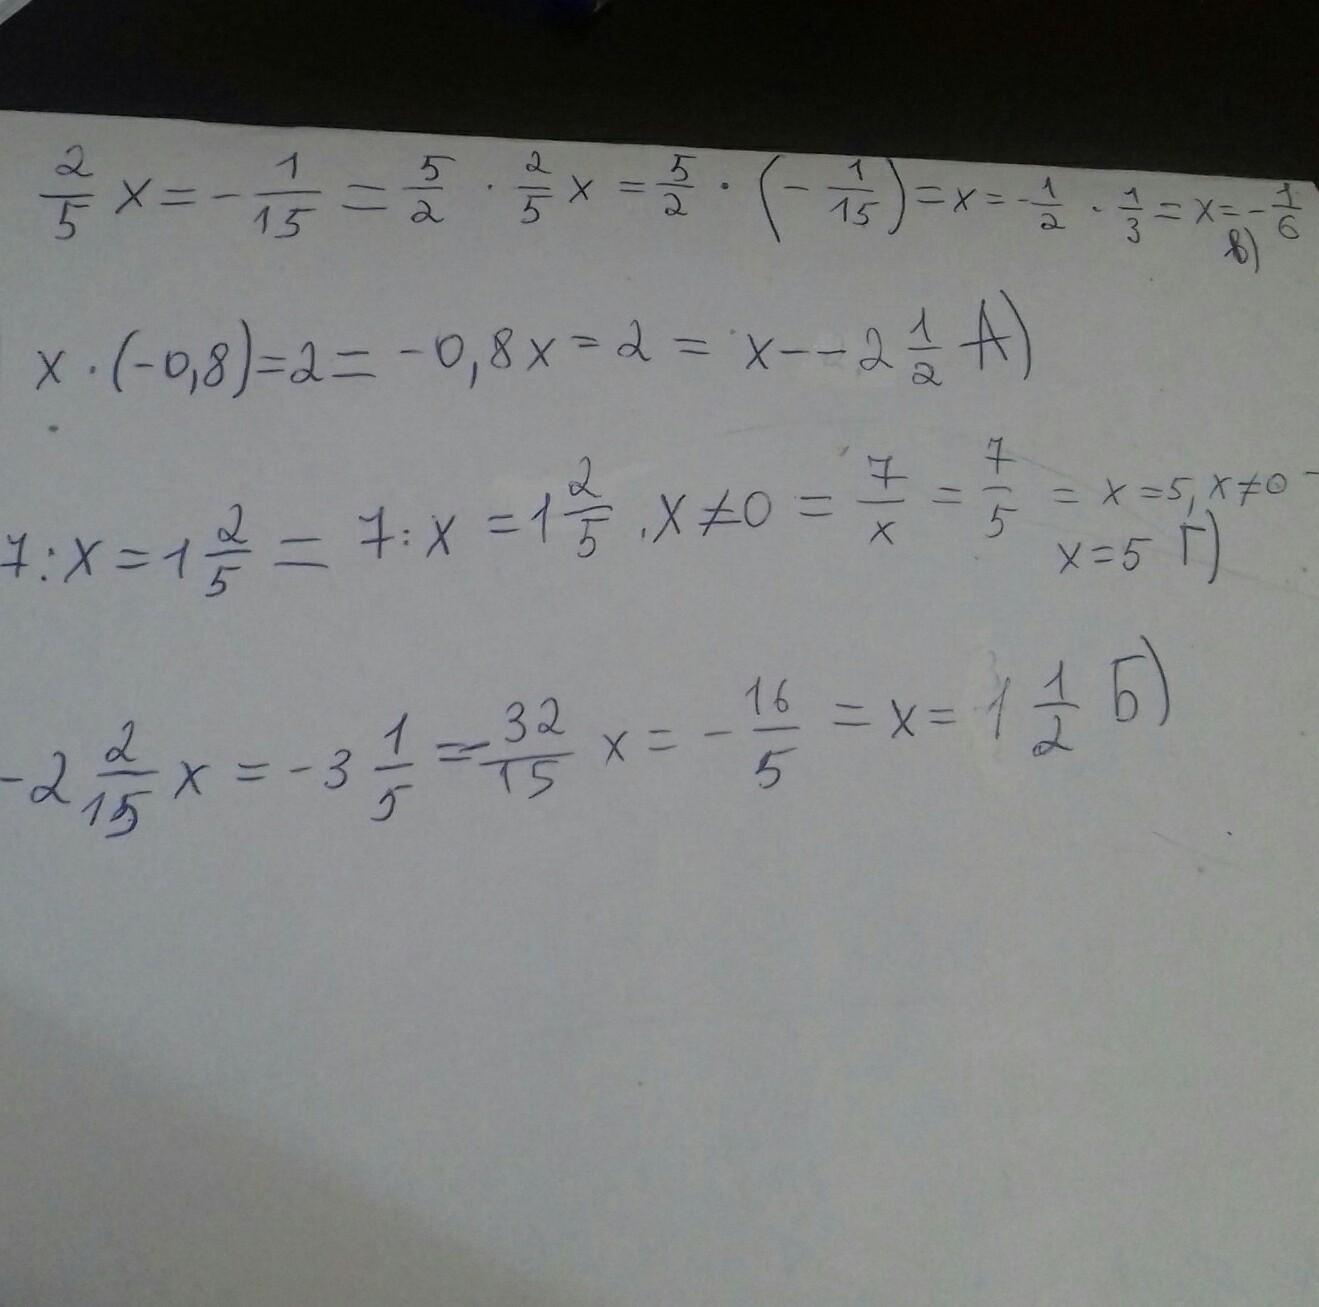 2/5 x = - 1/15 = 5/2 · 2/5 x = 5/2 · (- 1/15) = x = - 1/2 · 1/3 = x = - 1/6
в)
x · (-0,8) = 2 = -0,8x = 2 = x--2 1/2 А)
7 : x = 1 2/5 = 7 : x = 1 2/5 , x ≠ 0 = 7/x = 7/5 = x = 5, x ≠ 0 -
x = 5 Г)
-2 2/15 x = -3 1/5 = - 32/15 x = - 16/5 = x = 1 1/2 Б)